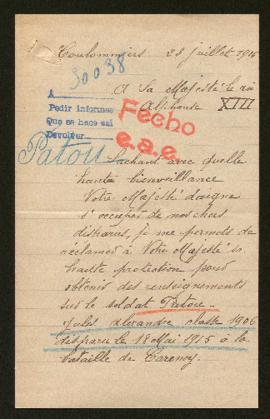 Coulommiers 23 Juillet 1915
30038
A Sa Majesté le roi
Alphonse XIII
A
Pedir informes
Que se hace así
Devolver
Fecho
e.a.e.
Patou
Sachant avec quelle
haute bienveillance
Votre Majesté daigne
s'occuper de nos chers
disparus, je me permets de
réclamer à Votre Majesté sa
haute protection pour
obtenir des renseignements
sur le soldat Patou
Jules Alexandre classe 1906
disparu le 18 Mai 1915 à la
bataille de Carency.